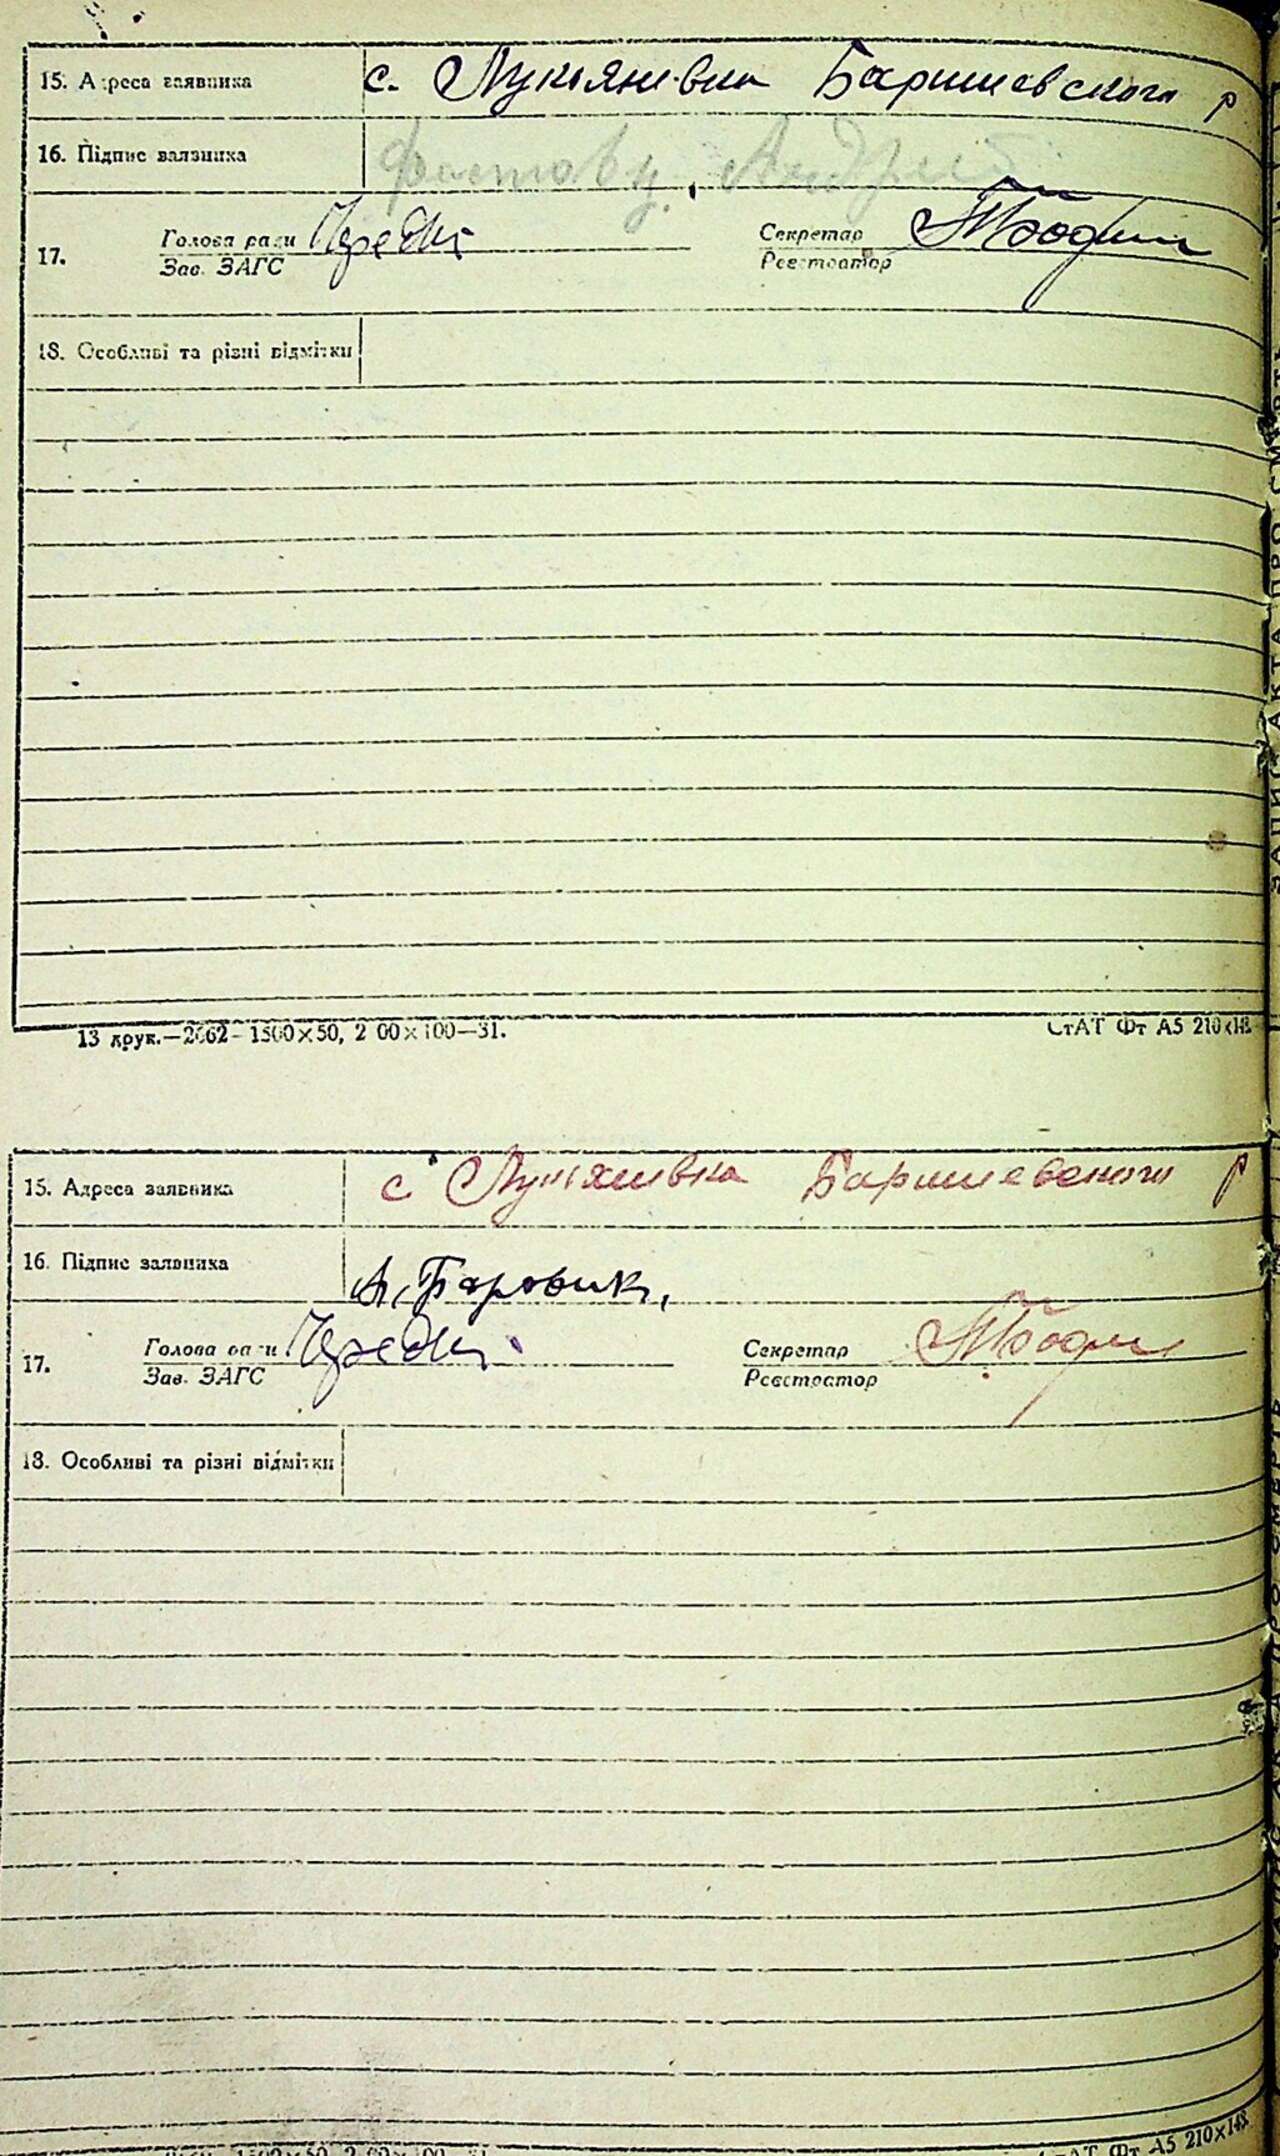 15. Адреса заявника с. Лукьянивка Баришевского р
16. Підпис заявника Фастовц. Андрій
17. Голова ради
Зав. ЗАГС
Секретар
Реєстратор
18. Особливі та різні відмітки
13 друк.—2662- 1500×50, 2 00×100—31.
СтАТ Фт А5 210×148.
15. Адреса заявника с Лукьянивка Баришевского р
16. Підпис заявника А. Боровик,
17. Голова ради
Зав. ЗАГС
Секретар
Реєстратор
18. Особливі та різні відмітки
Фт А5 210×148.